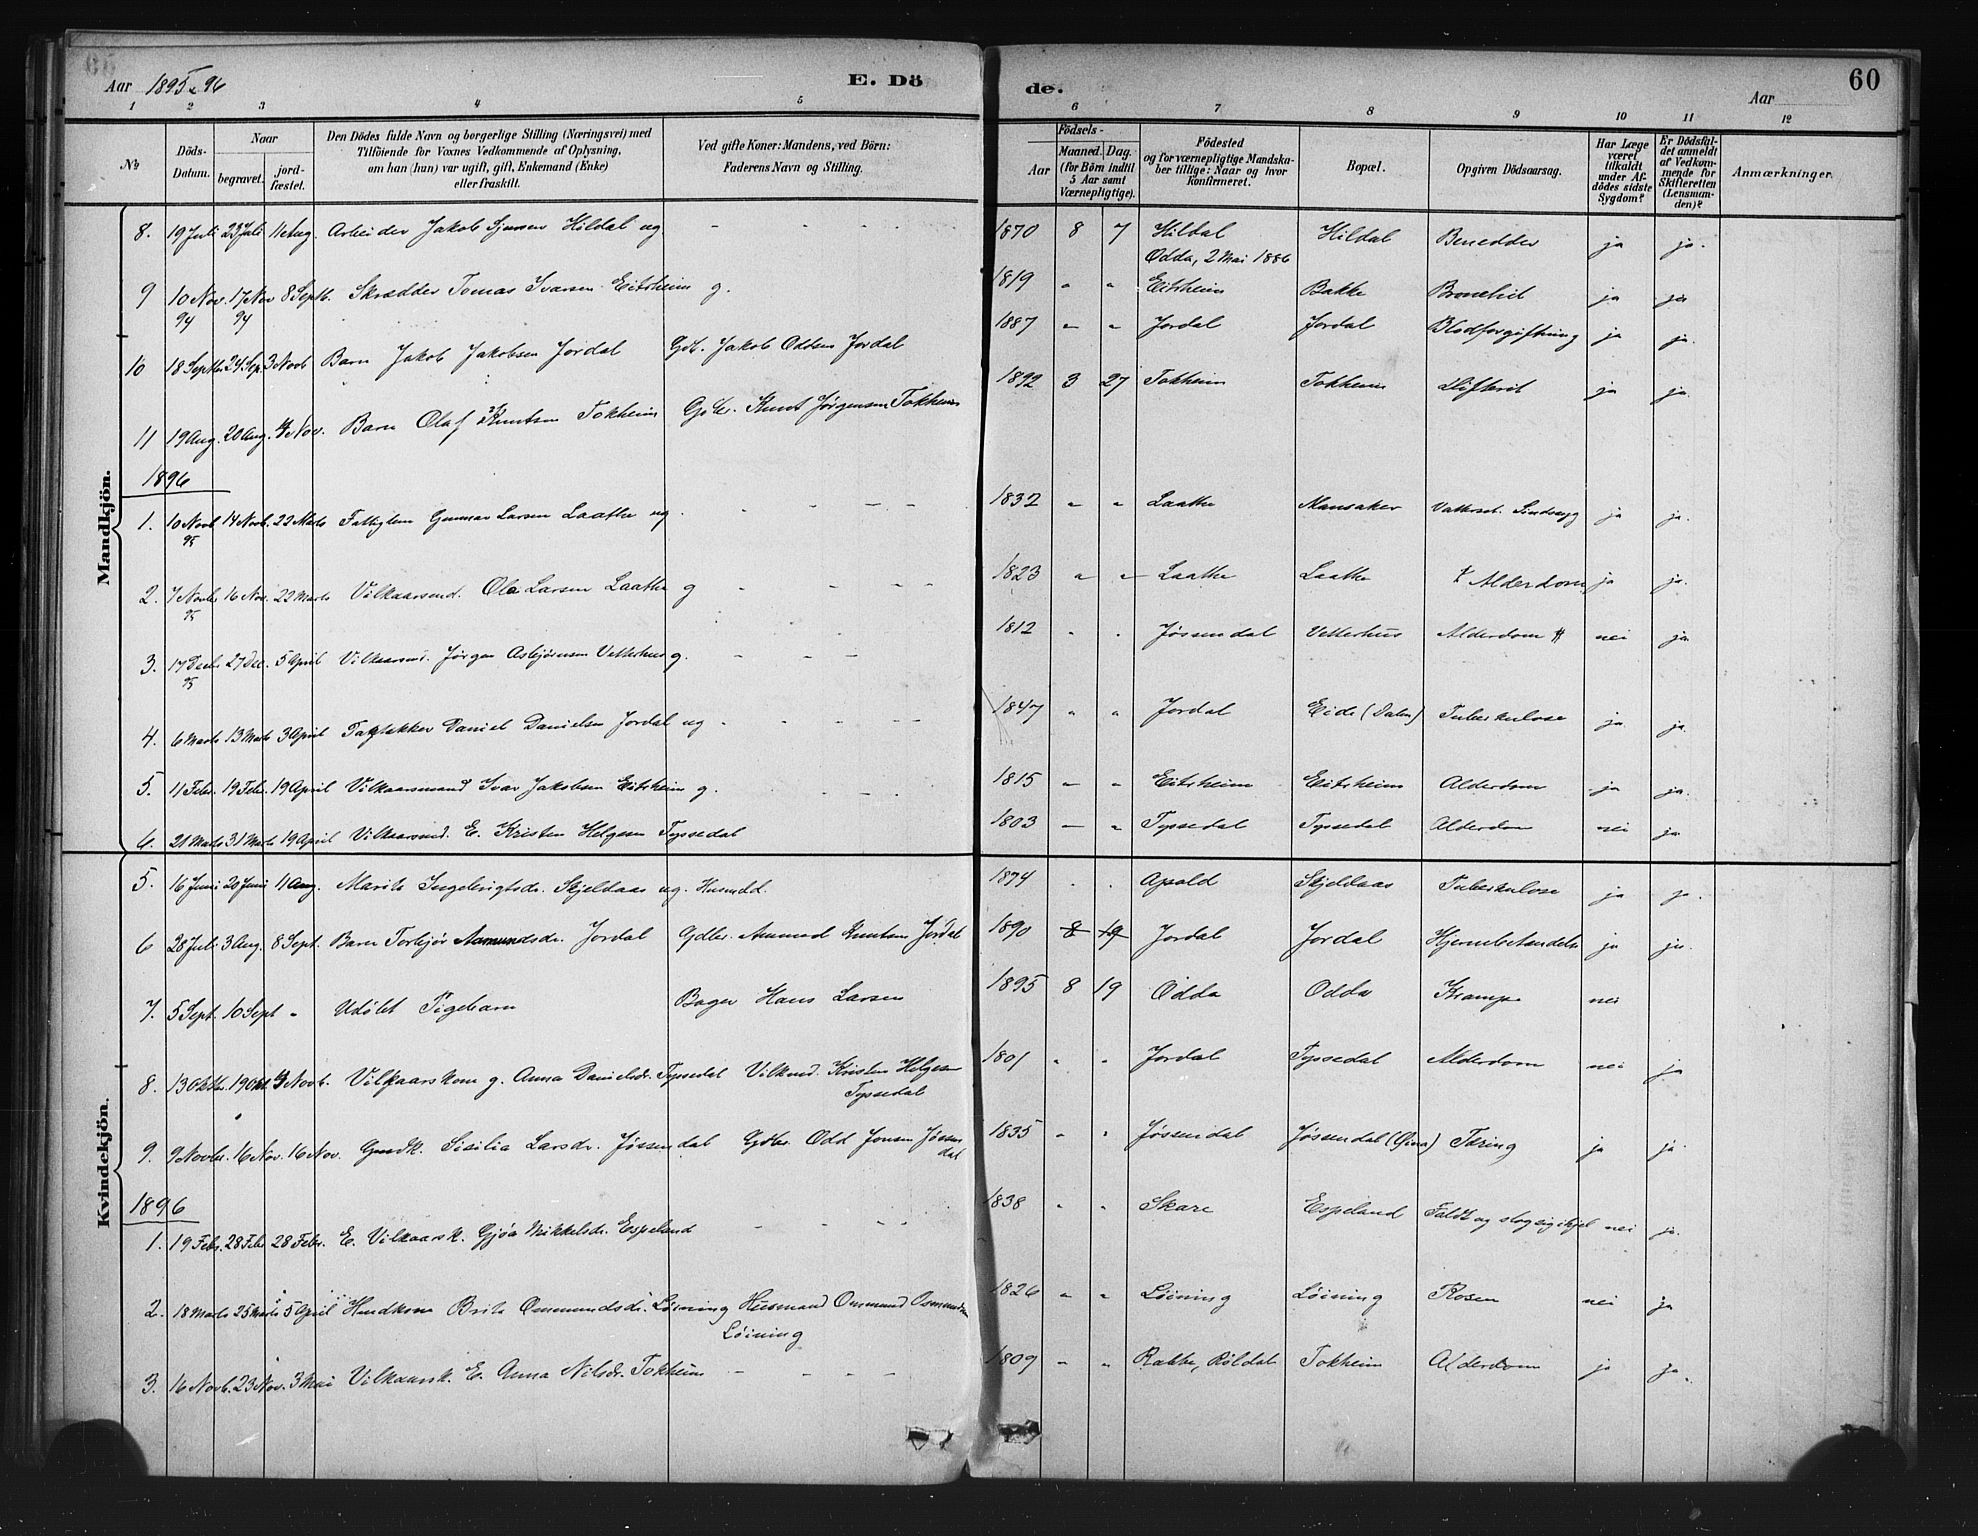 Aar 1895 & 96
E. Dö
de.
60
Aar
1 2 3 4 5 6 7 8 9 10 11 12
No
Döds-Datum.
Naar
begravet.
jord-fæstet.
Den Dödes fulde Navn og borgerlige Stilling (Næringsvei) med
Tilföiende for Voxnes Vedkommende af Oplysning,
om han (hun) var ugift, gift, Enkemand (Enke)
eller fraskilt.
Ved gifte Koner: Mandens, ved Börn:
Faderens Navn og Stilling.
Födsels-
Aar
Maaned. Dag.
(for Börn indtil
5 Aar samt
Værnepligtige).
Födested
og for værnepligtige Mandska-
ber tillige: Naar og hvor
konfirmeret.
Bopæl.
Opgiven Dödsaarsag.
Har Læge
været
tilkaldt
under Af-
dödes sidste
Sygdom?
Er Dödsfal-
det anmeldt
af Vedkom-
mende for
Skifteretten
(Lensman-
den)?
Anmærkninger.
Mandkjön.
8. 19 Juli 22 Juli 11 Aug. Arbeider Jakob Hildal ug - - - 1870 8 7 Hildal Hildal ja ja.
Odda, 2 Mai 1886
9 10 Nov. 17 Nov 8 Septb. Skrædder Tomas Ivarsen Eitrheim g. 1819 " " Eitrheim Bakke Bronchit ja ja
94 94
10 18 Septbr. 24 Sep. 3 Novb Barn Jakob Jakobsen Jordal Gdb. Jakob Oddsen Jordal 1887 " " Jordal Jordal Blodforgiftning ja ja.
11 19 Aug. 20 Aug. 4 Nov. Barn Olaf Knutsen Tokheim Gdbr. Knut Jørgensen Tokheim 1892 3 27 Tokheim Tokheim Difterit ja ja.
1896
1. 10 Novb 14 Novb. 22 Marts Fattiglem Gunnar Larsen Laathe ug. - - - 1832 " " Laathe Mansaker ja ja.
95
2. 7 Novbr 16 Nov. 22 Marts Vilkaarsmd. Ola Larsen Laathe g - - - 1823 " " Laathe Laathe Alderdom ja ja.
95
3. 17 Decb. 27 Dec. 5 April Vilkaarsmd. Jørgen Asbjørnsen Vetterhus g. - - - 1812 " " Jøssendal Vetterhus Alderdom nei ja
95
4. 6 Marts 13 Marts 3 April Daniel Danielsen Jordal ug - - - 1847 " " Jordal Eide (Dalen) Tuberkulose ja ja.
5. 11 Febr. 19 Febr. 19 April Vilkaarsmand Ivar Jakobsen Eitrheim g. - - - 1815 " " Eitrheim Eitrheim Alderdom ja ja.
6. 21 Marts 31 Marts 19 April Vilkaarsmd. E. Kristen Helgesen Tyssedal 1803 " " Tyssedal Tyssedal Alderdom nei ja
Kvindekjön.
5. 16 Juni 20 Juni 11 Aug. Marite Ingebrigtsdr. Skjeldaas ug. 1874 " " Apold Skjeldaas Tuberkulose ja ja.
6 28 Juli 3 Aug. 8 Sept. Barn Torbjør Aamundsdr. Jordal Gdbr. Aamund Knutsen Jordal 1890 8 19 Jordal Jordal Hjernebetændelse ja ja.
7. 5 Sept. 10 Sept " Udøbt Pigebarn Bager Hans Larsen 1895 8 19 Odda Odda Krampe nei
8. 13 Oktbr. 19 Okt 3 Novb. Vilkaarskone g. Anna Danielsdr. Tyssedal Vilkmd. Kristen Helgesen 1801 " " Jordal Tyssedal Alderdom nei ja
Tyssedal
9. 9 Novbr. 16 Nov. 16 Nov. Gmdk. Sisilia Larsdr. Jøssendal Gdbr. Odd Jonsen Jøssen 1835 " " Jøssendal Jøssendal Tæring ja ja
dal
1896
1. 19 Febr. 28 Febr 28 Febr. E. Vilkaarsk. Gjøa Mikkelsdr. Espeland - - - 1838 " " Skare Espeland Faldt og slog sig ihjel nei ja.
2. 18 Marts 25 Marts 5 April Brita Ommundsdr. Løining Husmand Ommund Osmundsen 1826 " " Løining Løining Rosen nei ja
Løining
3. 16 Novb. 23 Nov. 3 Mai Vilkaarsk. E. Anna Nilsdr. Tokheim - - - 1809 " " Rabbe, Røldal Tokheim Alderdom ja ja.